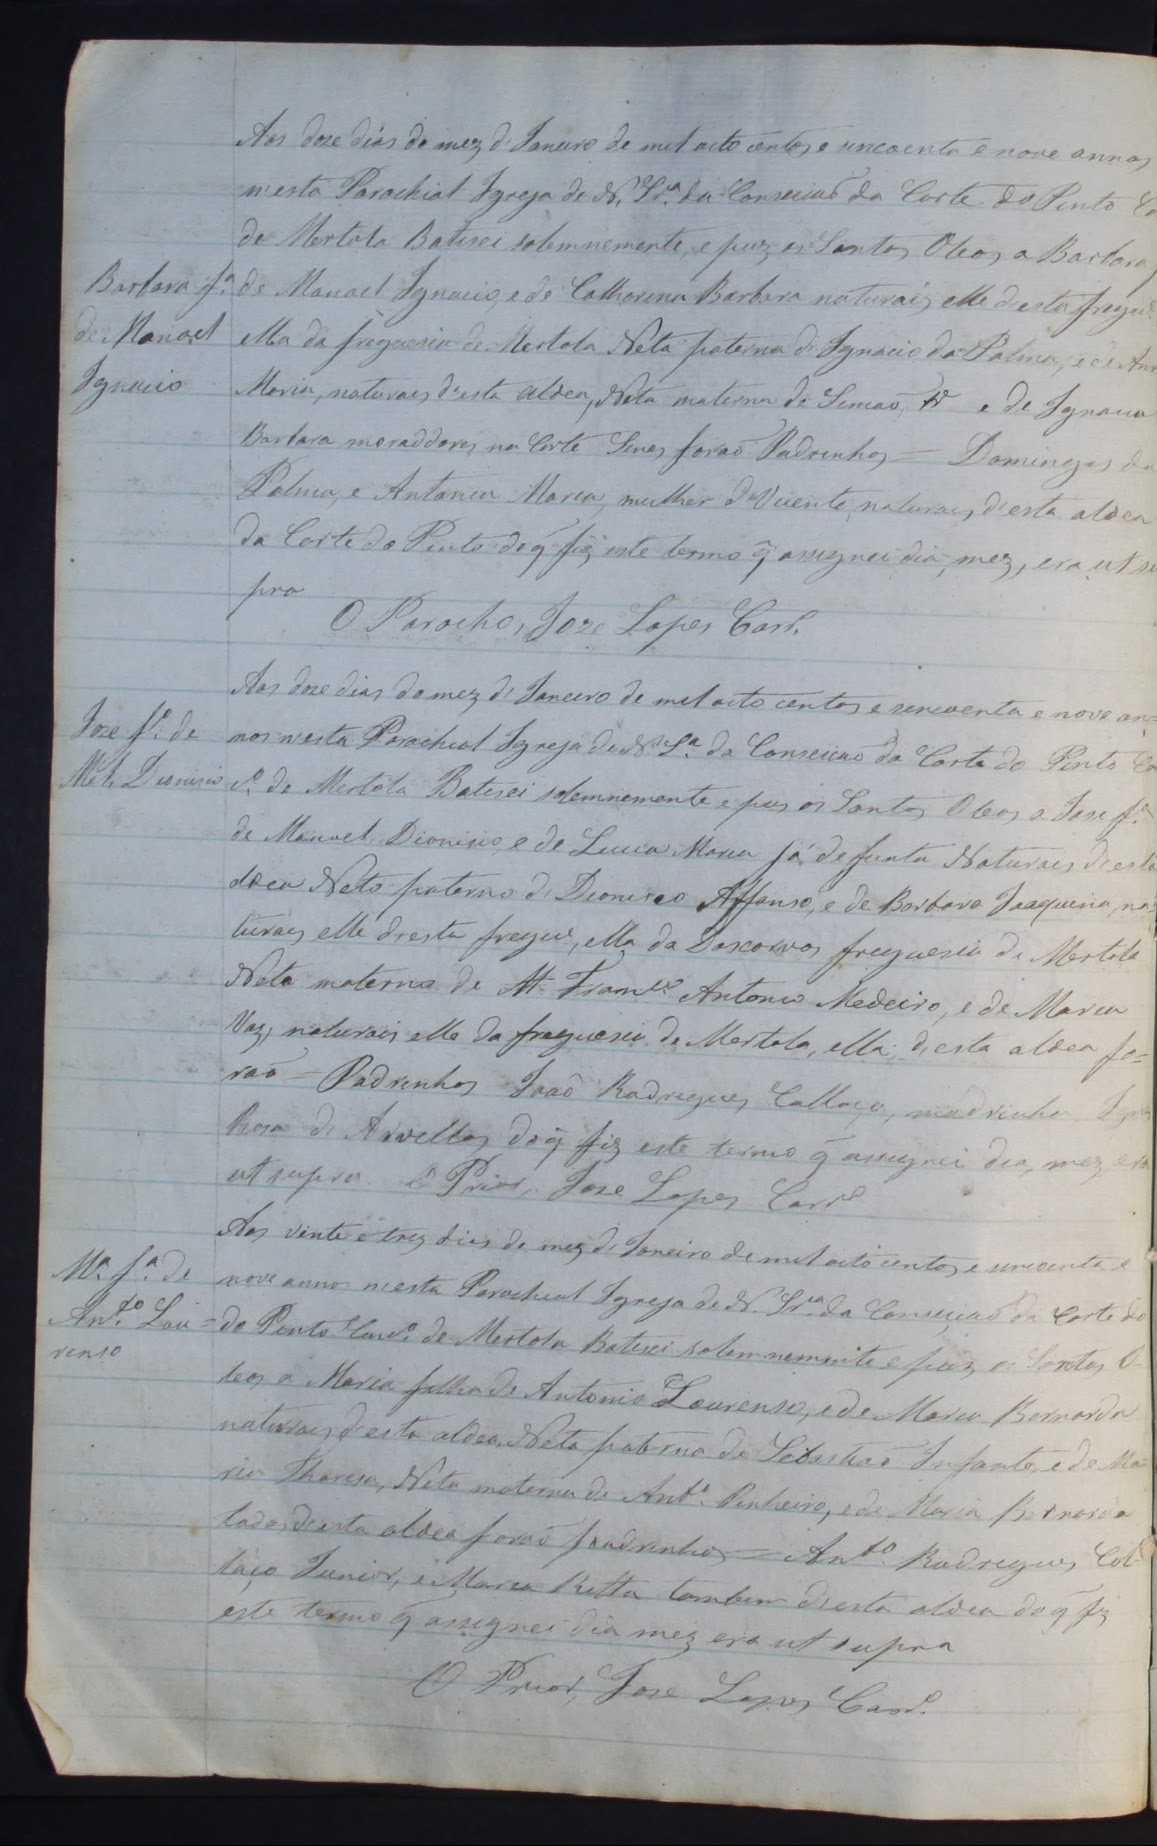 Aos doze dias do mez d'Janeiro de mil oito centos e sincoenta e nove annos
n'esta Parochial Igreja de N. Srª. da Conseicaõ da Corte do Pinto Co
de Mertola Batisei solemnemente, e puz os Santos Oleos a Barbara f
Barbara fª.
de Manoel
Ignacio
de Manoel Ignacio, e de Catharina Barbara naturais elle d'esta fregue
ella da freguesia de Mertola Neta paterna d' Ignacio da Palma, e de Ann
Maria, naturaes d'esta aldea, Neta materna de Simaõ, e de Ignacia
Barbara moraddores na Corte Sines foraõ Padrinhos = Domingos da
Palma, e Antonia Maria, mulher d Vicente, naturais d'esta aldea
da Corte do Pinto do q̃ fiz este termo q̃ assignei dia, mez, era ut su
pra
O Parocho, Joze Lopes Carr.
Joze fº. de
Mel. Dionisio
Aos doze dias do mez d' Janeiro de mil oito centos e sincoenta e nove an=
nos n'esta Parochial Igreja de N Sª. da Conseicaõ da Corte do Pinto Co
cº. de Mertola Batisei solemnemente e pus os Santos Oleos a Jose fº.
de Manoel Dionisio, e de Luzia Maria já defunta Naturais d'esta
aldea Neto paterno d' Dionisio Affonso, e de Barbara Joaquina, na=
turais elle d'esta fregue., ella da freguesia de Mertola
Neto materno de Antonio Medeiro, e de Maria
Vaz, naturais elle da freguesia de Mertola, ella, d'esta aldea fo=
raõ = Padrinhos Joaõ Rodrigues Collaço, madrinha
Rosa d' Arvellos do q̃ fiz este termo q̃ assignei dia, mez, era
ut supra. O Prior, Jose Lopes Carrº
Mª. fª. de
Anto. Lou=
renso
Aos vinte e tres dias do mez d' Janeiro de mil oito centos e sincoenta e
nove annos n'esta Parochial Igreja de N. Srª. da Conseiçaõ da Corte do
do Pinto Concº. de Mertola Batisei solemnemente e puz os Santos O-
leos a Maria filha de Antonio Lourenso, e de Maria Bernarda
naturais d'esta aldea, Neta paterna de Sebastiaõ Infante, e de Ma=
ria Theresa, Neta materna de Antº. Pinheiro, e de Maria Bernarda
todos d'esta aldea foraõ padrinhos = Anto. Rodrigues Col=
laço Junior, e Maria Ritta tambem d'esta aldea do q̃ fiz
este termo q̃ assignei dia mez era ut supra
O Prior, Jose Lopes Carrº.